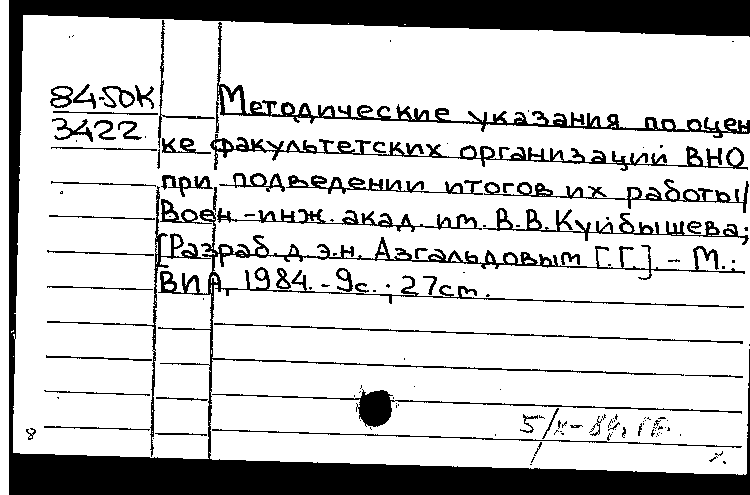 84-50К Методические указания по оцен
3422 ке факультетских организаций ВНО
при подведении итогов их работы/
Воен.-инж. акад. им. В.В.Куйбышева;
[Разраб. д.э.н. Азгальдовым [Г.Г.] - М.:
ВИА, 1984. - 9с.; 27см.
5/x-84г.
8